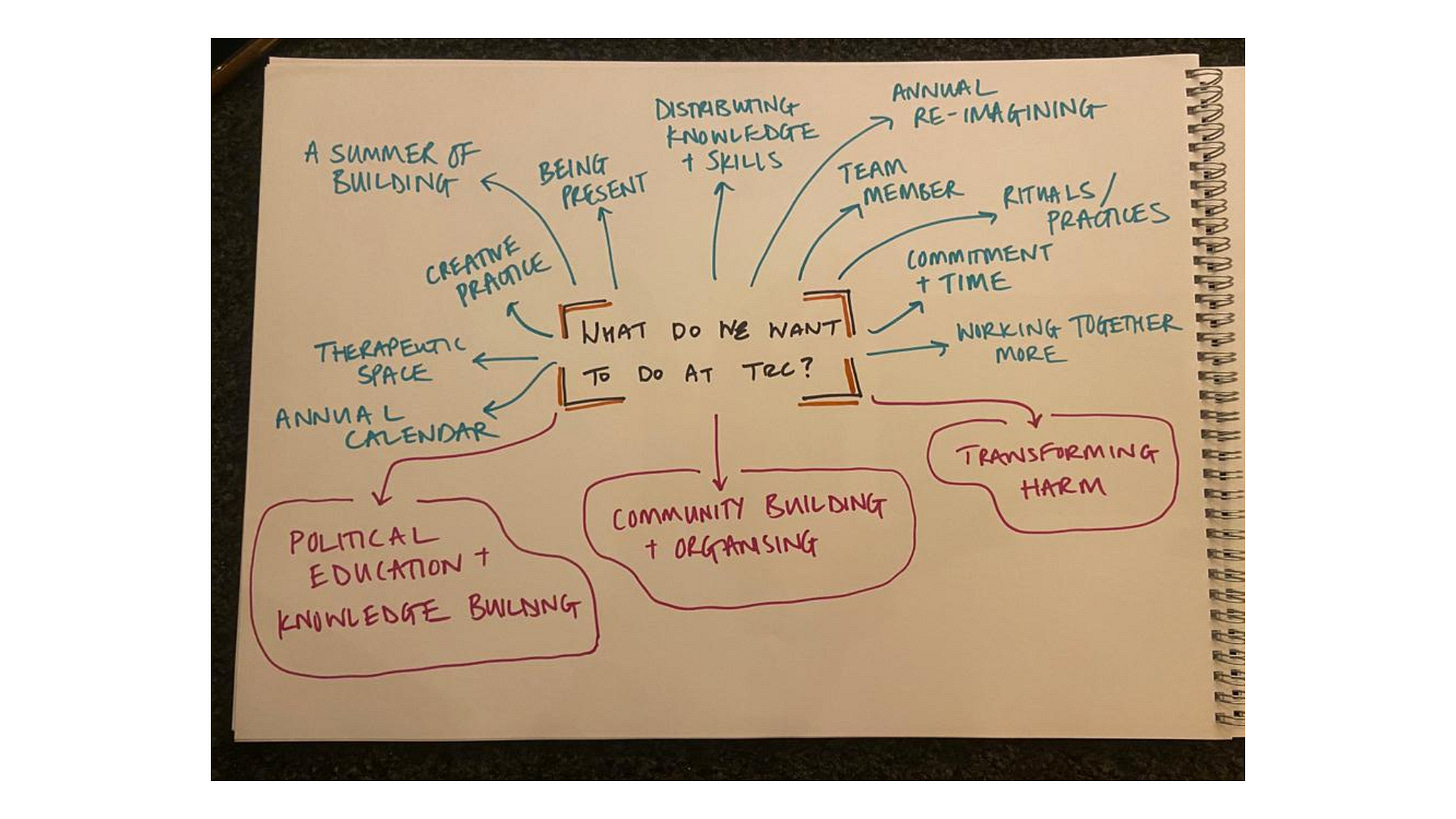 ANNUAL
RE-IMAGINING
DISTRIBUTING
KNOWLEDGE
+ SKILLS
A SUMMER OF
BUILDING
BEING
PRESENT
TEAM
MEMBER
RITUALS/
PRACTICES
CREATIVE
PRACTICE
COMMITMENT
+ TIME
THERAPEUTIC
SPACE
WORKING TOGETHER
MORE
WHAT DO WE WANT
TO DO AT TRC?
ANNUAL
CALENDAR
TRANSFORMING
HARM
POLITICAL
EDUCATION +
KNOWLEDGE BUILDING
COMMUNITY BUILDING
+ ORGANISING